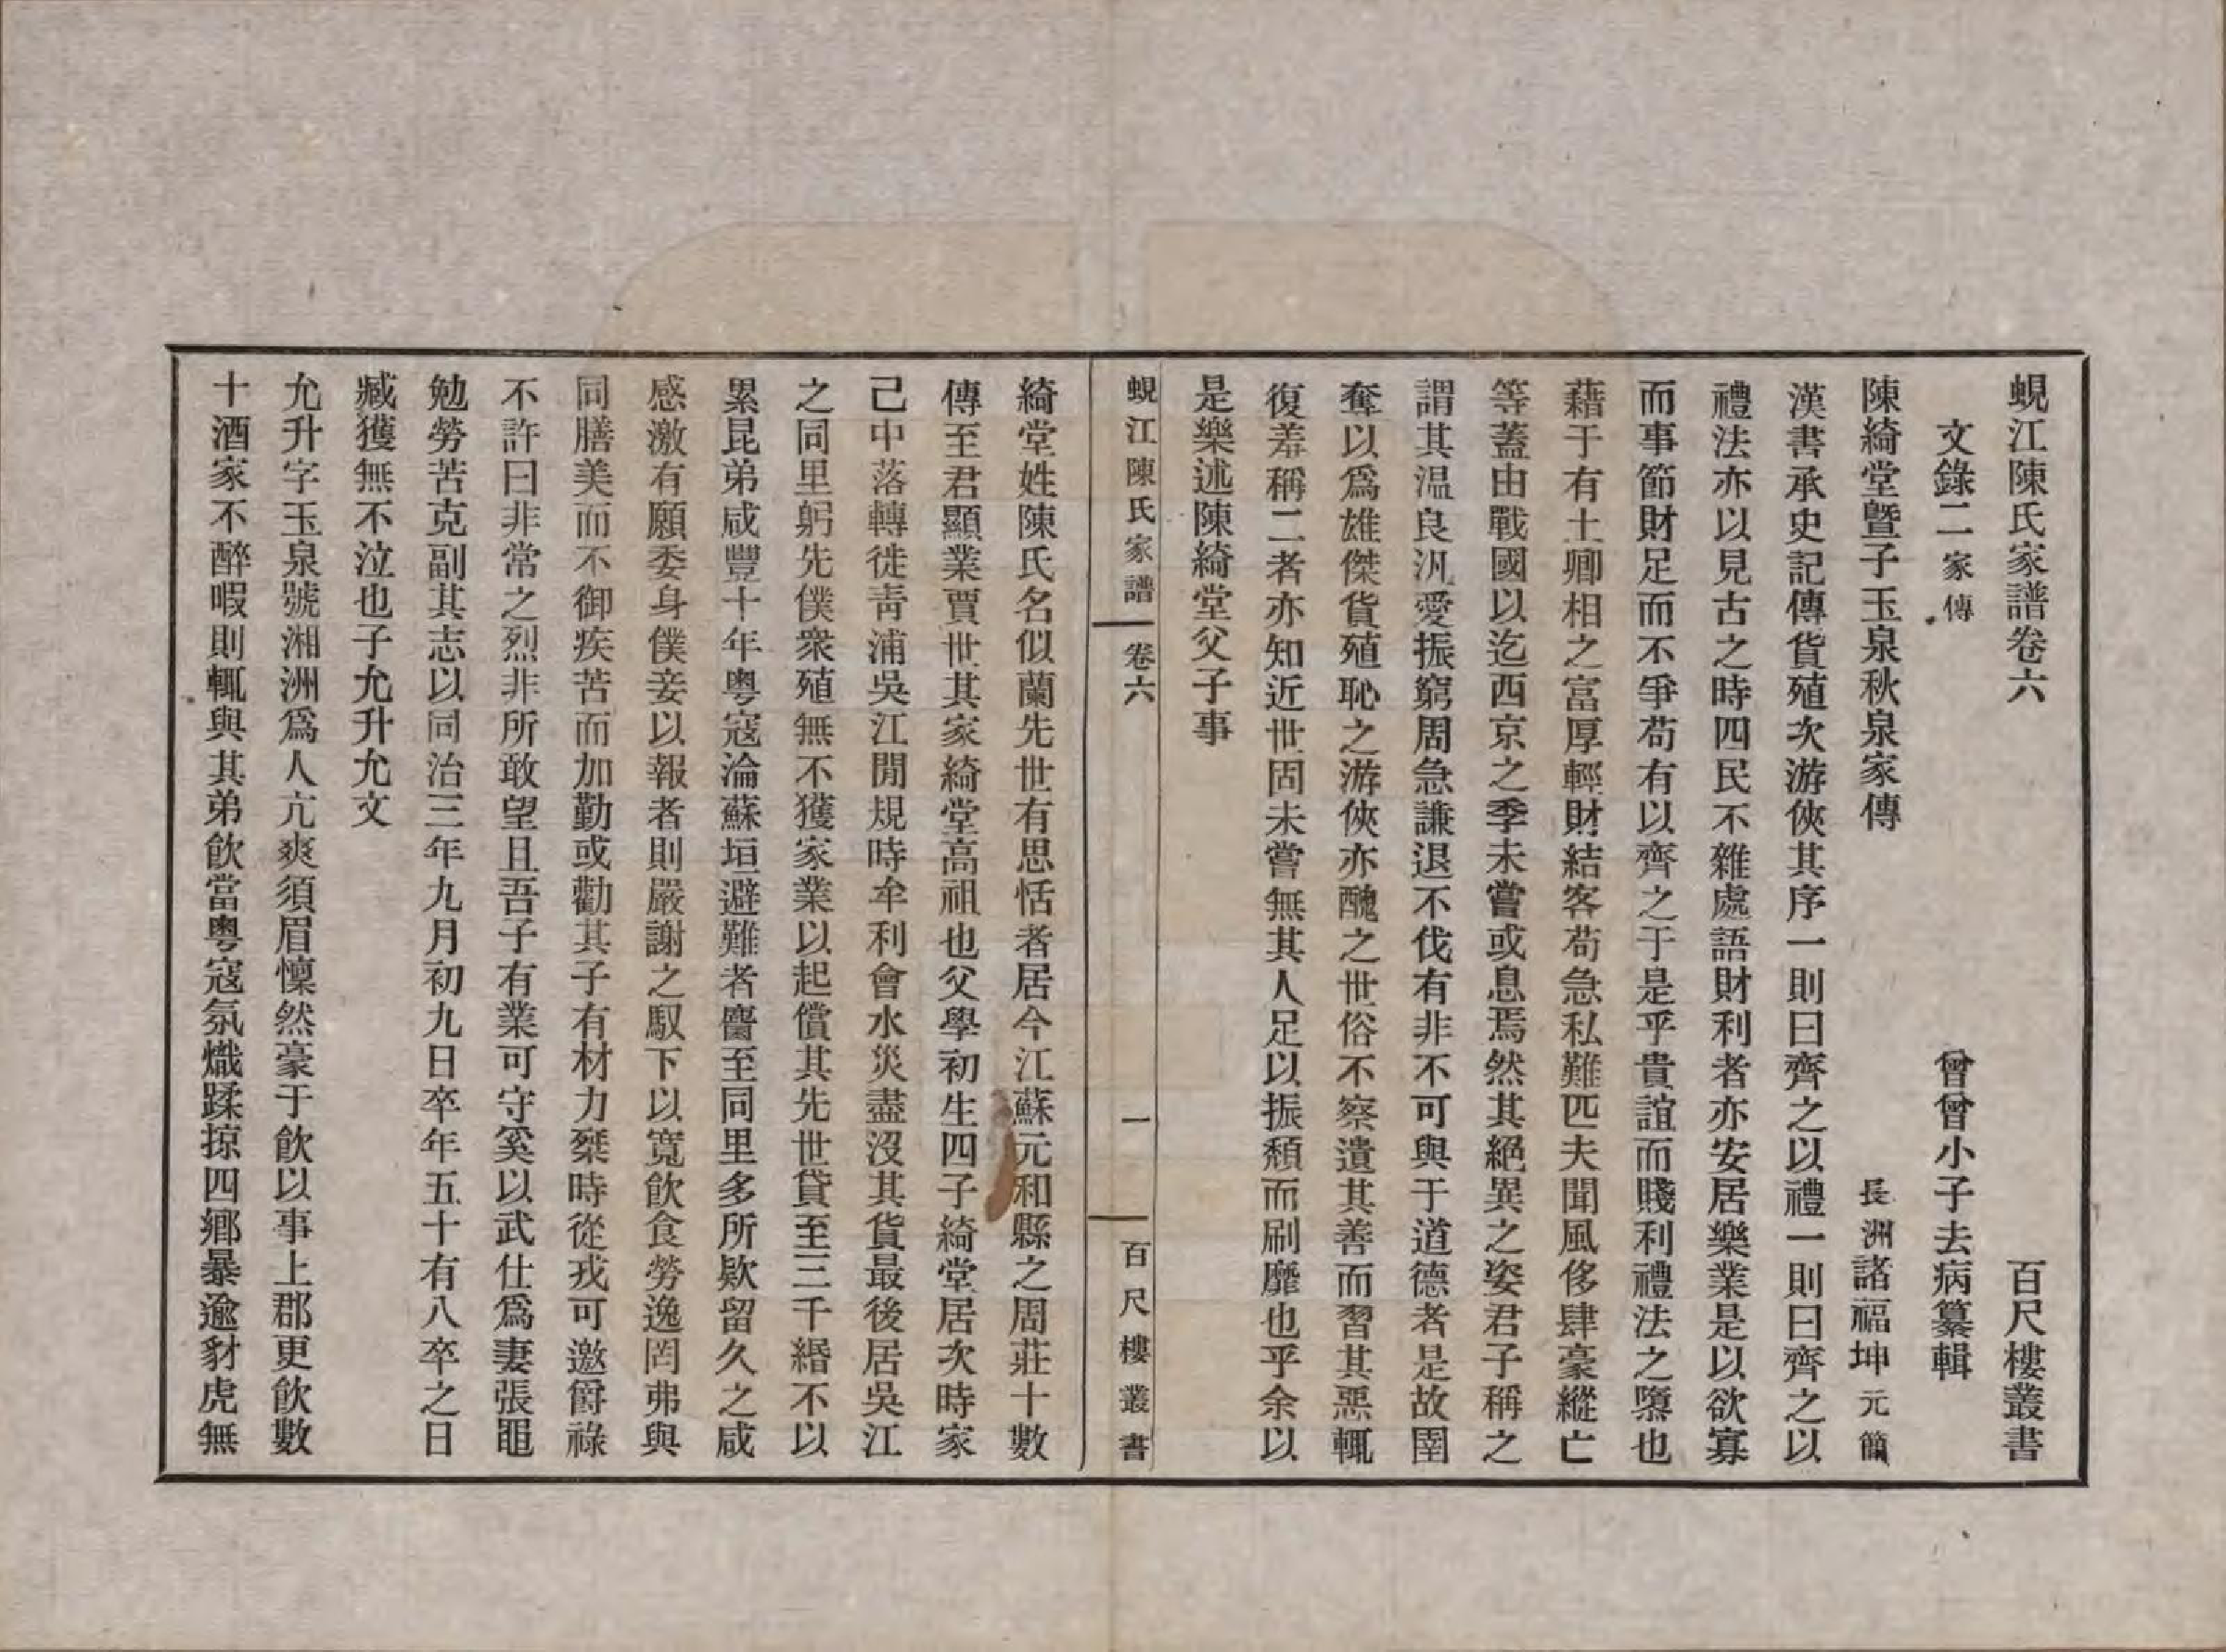 蜆江陳氏家譜卷六 百尺樓叢書
文錄二家傳 曾曾小子去病纂輯
陳綺堂暨子玉泉秋泉家傳 長洲諸福坤元簡
漢書承史記傳貨殖次游俠其序一則曰齊之以禮一則曰齊之以
禮法亦以見古之時四民不雜處語財利者亦安居樂業是以欲寡
而事節財足而不爭苟有以齊之于是乎貴誼而賤利禮法之隳也
藉于有土卿相之富厚輕財結客苟急私難匹夫聞風侈肆豪縱亡
等蓋由戰國以迄西京之季未嘗或息焉然其絕異之姿君子稱之
謂其溫良汎愛振窮周急謙退不伐有非不可與于道德者是故閨
奪以爲雄傑貨殖恥之游俠亦醜之世俗不察遺其善而習其惡輒
復羞稱二者亦知近世固未嘗無其人足以振頽而刷靡也乎余以
是樂述陳綺堂父子事
蜆江陳氏家譜 卷六 一 百尺樓叢書
綺堂姓陳氏名似蘭先世有思恬者居今江蘇元和縣之周莊十數
傳至君顯業賈世其家綺堂高祖也父學初生四子綺堂居次時家
己中落轉徙靑浦吳江閒規時牟利會水災盡沒其貨最後居吳江
之同里躬先僕衆殖無不獲家業以起償其先世貸至三千緡不以
累昆弟咸豐十年粵寇淪蘇垣避難者麕至同里多所欵留久之咸
感激有願委身僕妾以報者則嚴謝之馭下以寬飲食勞逸罔弗與
同膳美而不御疾苦而加勤或勸其子有材力桀時從戎可邀爵祿
不許曰非常之烈非所敢望且吾子有業可守奚以武仕爲妻張黽
勉勞苦克副其志以同治三年九月初九日卒年五十有八卒之日
臧獲無不泣也子允升允文
允升字玉泉號湘洲爲人亢爽須眉懍然豪于飲以事上郡更飲數
十酒家不醉暇則輒與其弟飲當粵寇氛熾蹂掠四鄕暴逾豺虎無